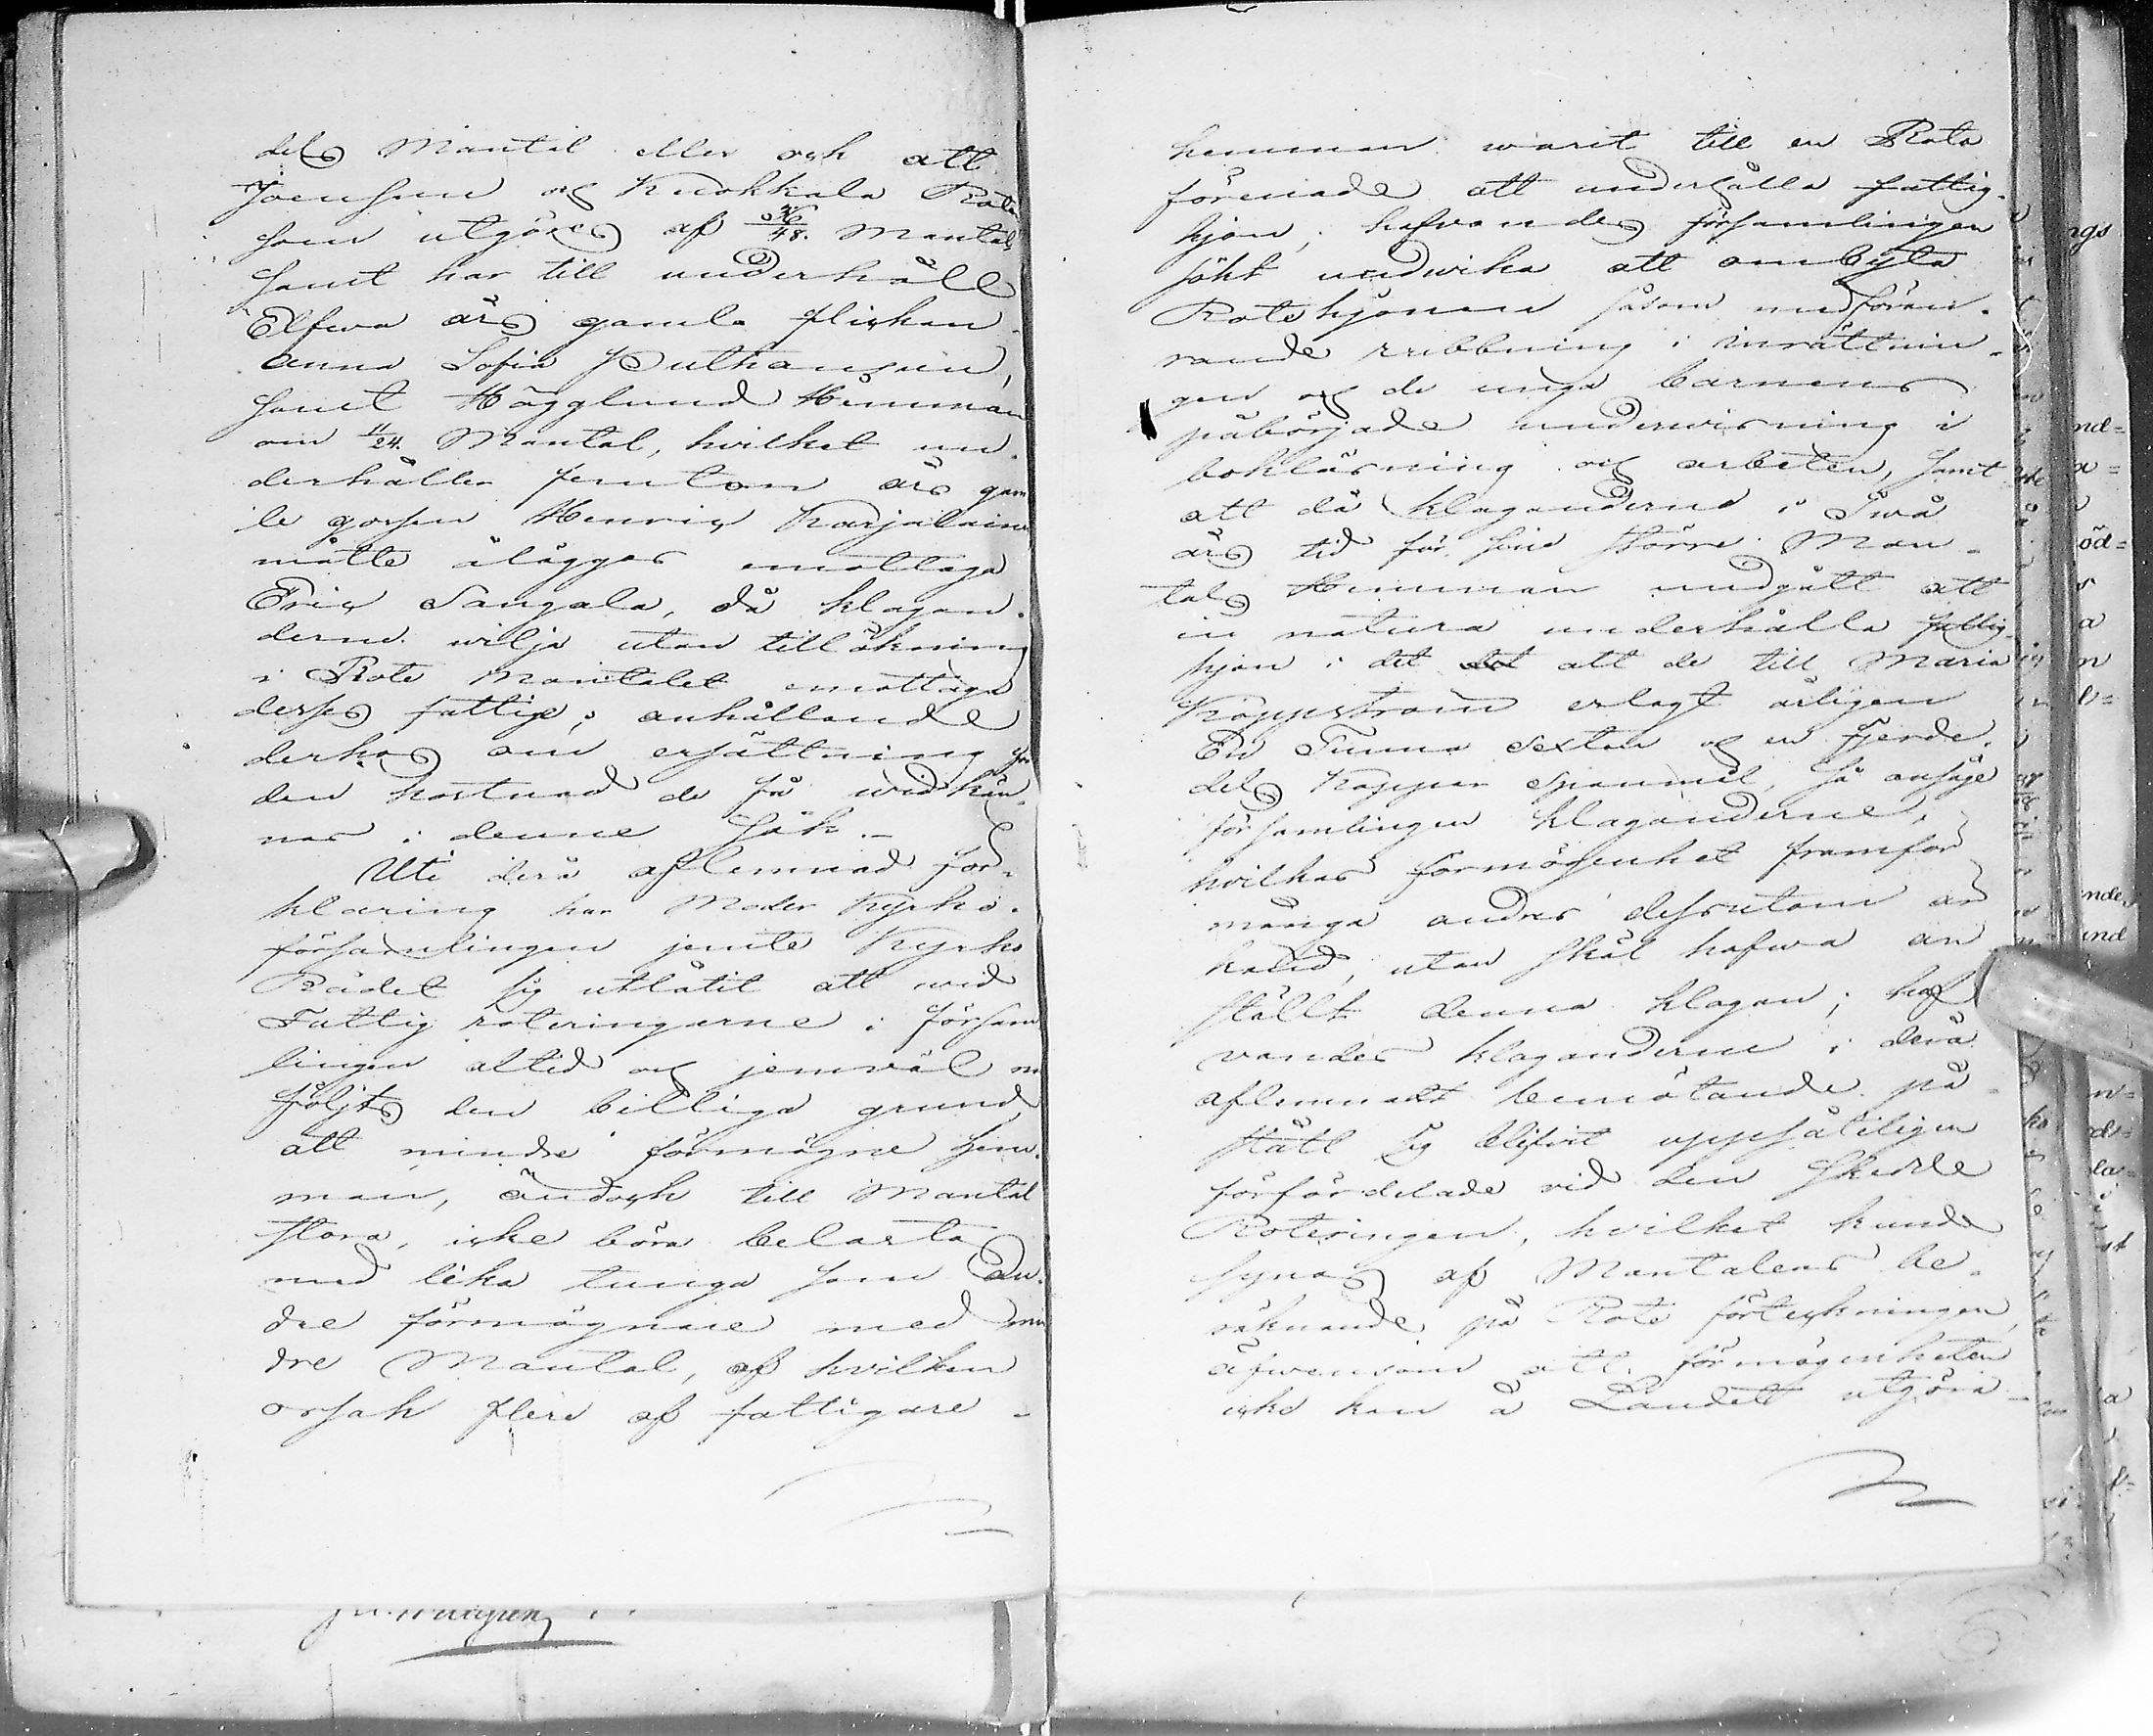 dels Mantal eller ock att
Joensuu och Kuokkala Rote
som utgöres af 36/48. Mantal
samt har till underhåll
Elfva års gamla flickan
Anna Sofia Puthansuu,
samt Hägglund Hemman
om 11/24. Mantal, hvilket un-
derhåller femton års gam
le gossen Henric Karjalainen
måtte åläggas emottaga
Eric Sangala, då klagan-
derne vilja utan tillökning
i Rote Mantalet emottaga
desses fattige; anhållande
derhos om ersättning för
den kostnad de få vidkän-
nas i denne sak.-
Uti derå aflemnad för-
klaring har Moder Kyrko-
församlingen jemte Kyrko
Rådet sig utlåtit att vid
Fattig roteringarne i försam
lingen altid och jemväl nu
följts den billiga grund
att mindre förmögne hem-
man, ändock till Mantal
stora, icke böra belastas
med lika tunga som an-
dre förmögnare med min
dre Mantal, af hvilken
orsak flere af fattigare -
hemman warit till en Rota
förenade att underhålla fattig-
hjon; hafvandes församlingen
sökt undvika att ombyta
Rotehjonen såsom medföran-
rande rubbning i inrättnin-
gen och de unga barnens
påbörjade undervisning i
bokläsning och arbeten, samt
att då klaganderne i Två
års tid för sine större Man-
tals Hemman undgått att
in natura underhålla fattig-
hjon i det att de till Maria
Kappström erlagt årligen
En Tunna Sexton och en fjerde-
dels Kappar Spanmål, så ansåge
församlingen klaganderne,
hvilkas förmögenhet framför
många andras dessutom är
känd, utan skäl hafva an
ställt denna klagan; haf
vandes klaganderne i derå
aflemnadt bemötande på-
stått sig blifvit uppsåteligen
förfördelade vid den skedde
Roteringen, hvilket kunde
synas af Mantalens be-
räknande på Rote förteckningen,
äfvensom att förmögenheten
icke kan å Landet utgöra -